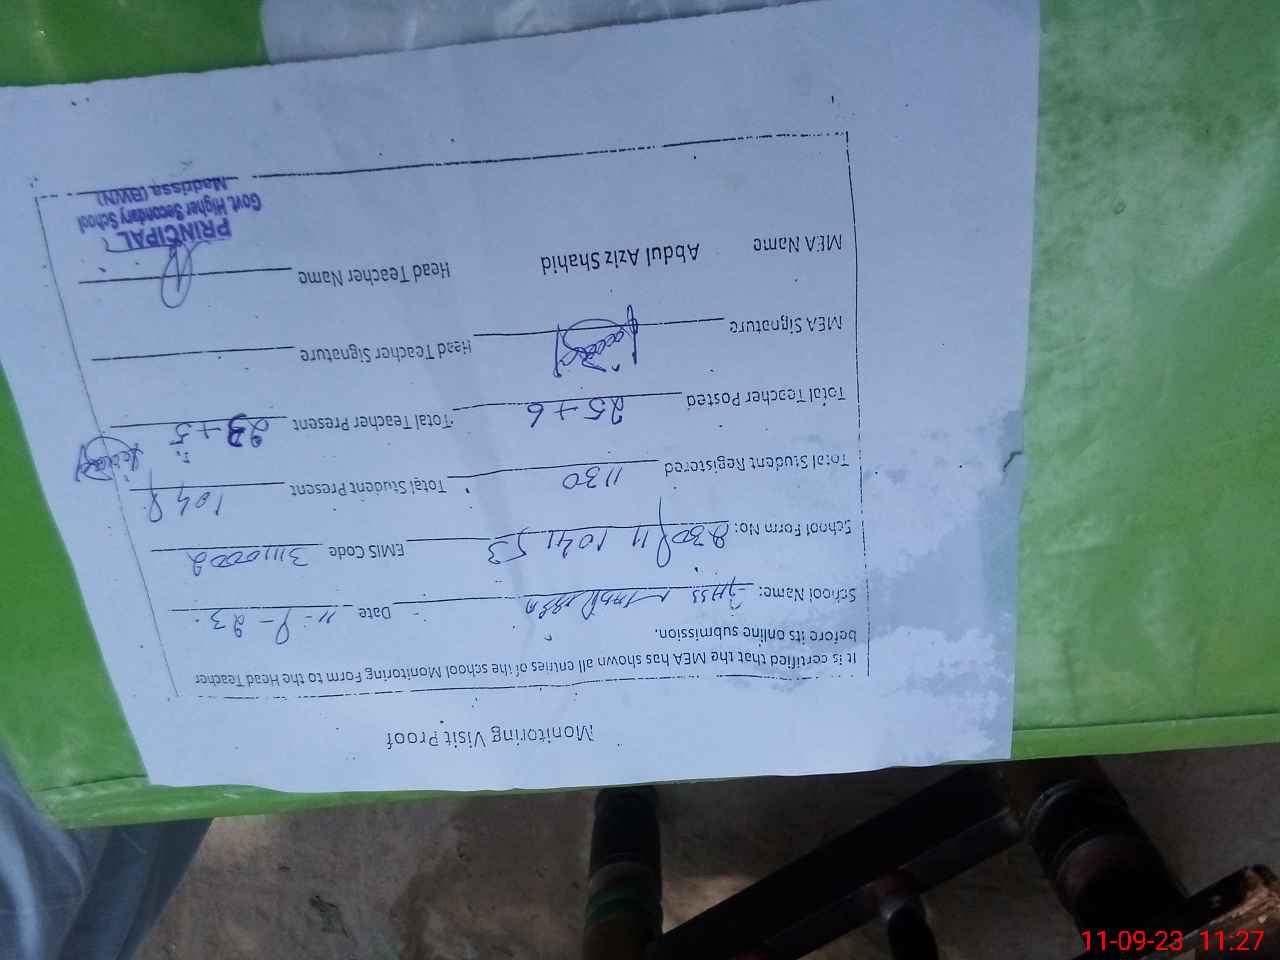 Monitoring Visit Proof
It is certified that the MEA has shown all entries of the school Monitoring Form to the Head Teacher
before its online submission.
School Name: Date 11-9-23.
School Form No: EMIS Code 31110002
Total Student Registered 1130 Total Student Present 1049
Total Teacher Posted 25+6 Total Teacher Present 23+5
MEA Signature Head Teacher Signature
MEA Name Abdul Aziz Shahid Head Teacher Name
PRINCIPAL
Govt. Higher Secondary School
Madrissa (BWN)
11-09-23 11:27